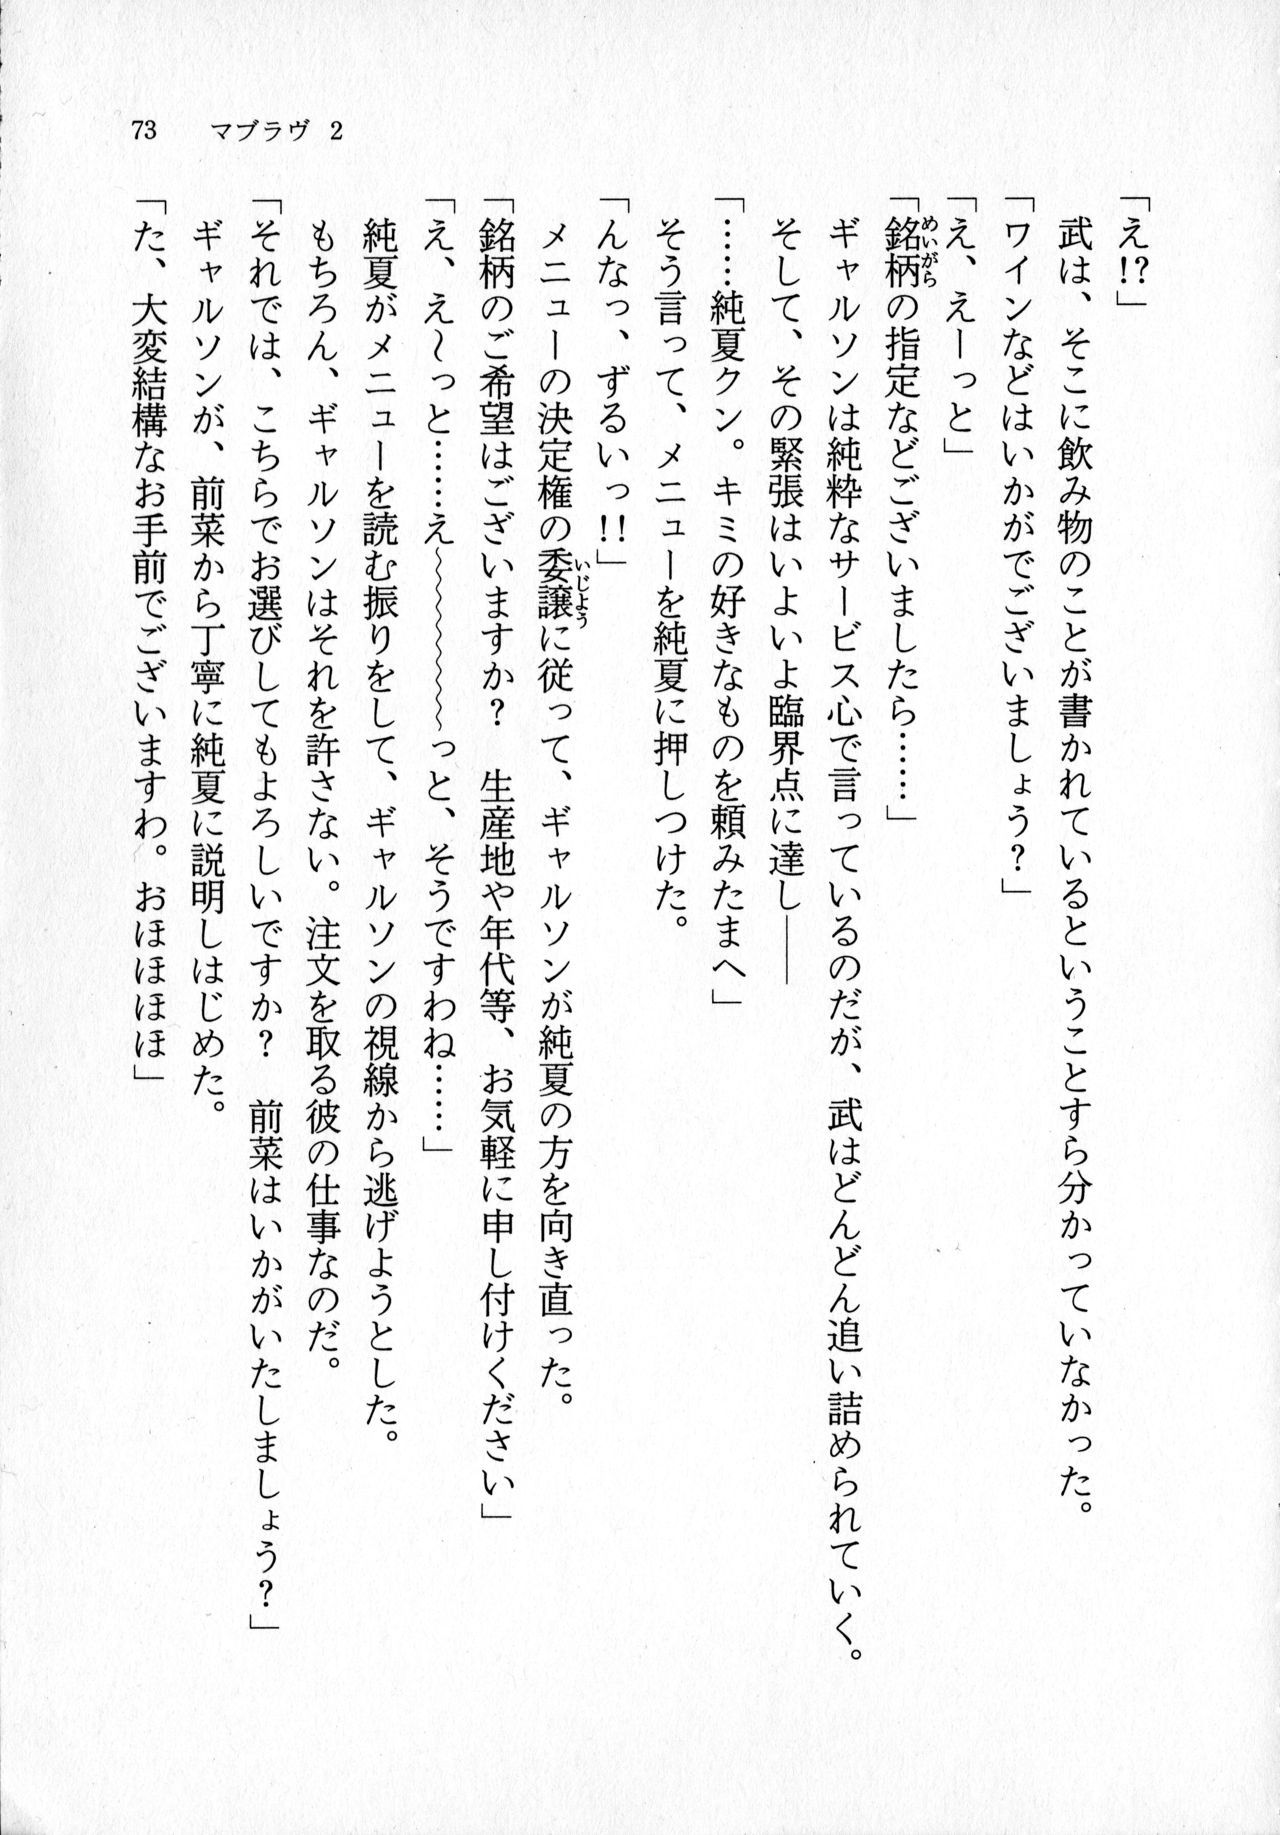 73　マブラヴ 2
「え!?」
　武は、そこに飲み物のことが書かれているということすら分かっていなかった。
「ワインなどはいかがでございましょう？」
「え、えーっと」
「銘柄の指定などございましたら……」
　ギャルソンは純粋なサービス心で言っているのだが、武はどんどん追い詰められていく。
　そして、その緊張はいよいよ臨界点に達し――
「……純夏クン。キミの好きなものを頼みたまへ」
　そう言って、メニューを純夏に押しつけた。
「んなっ、ずるいっ!!」
　メニューの決定権の委譲に従って、ギャルソンが純夏の方を向き直った。
「銘柄のご希望はございますか？　生産地や年代等、お気軽に申し付けください」
「え、え～っと……え～～～～～～っと、そうですわね……」
　純夏がメニューを読む振りをして、ギャルソンの視線から逃げようとした。
　もちろん、ギャルソンはそれを許さない。注文を取る彼の仕事なのだ。
「それでは、こちらでお選びしてもよろしいですか？　前菜はいかがいたしましょう？」
　ギャルソンが、前菜から丁寧に純夏に説明しはじめた。
「た、大変結構なお手前でございますわ。おほほほほ」